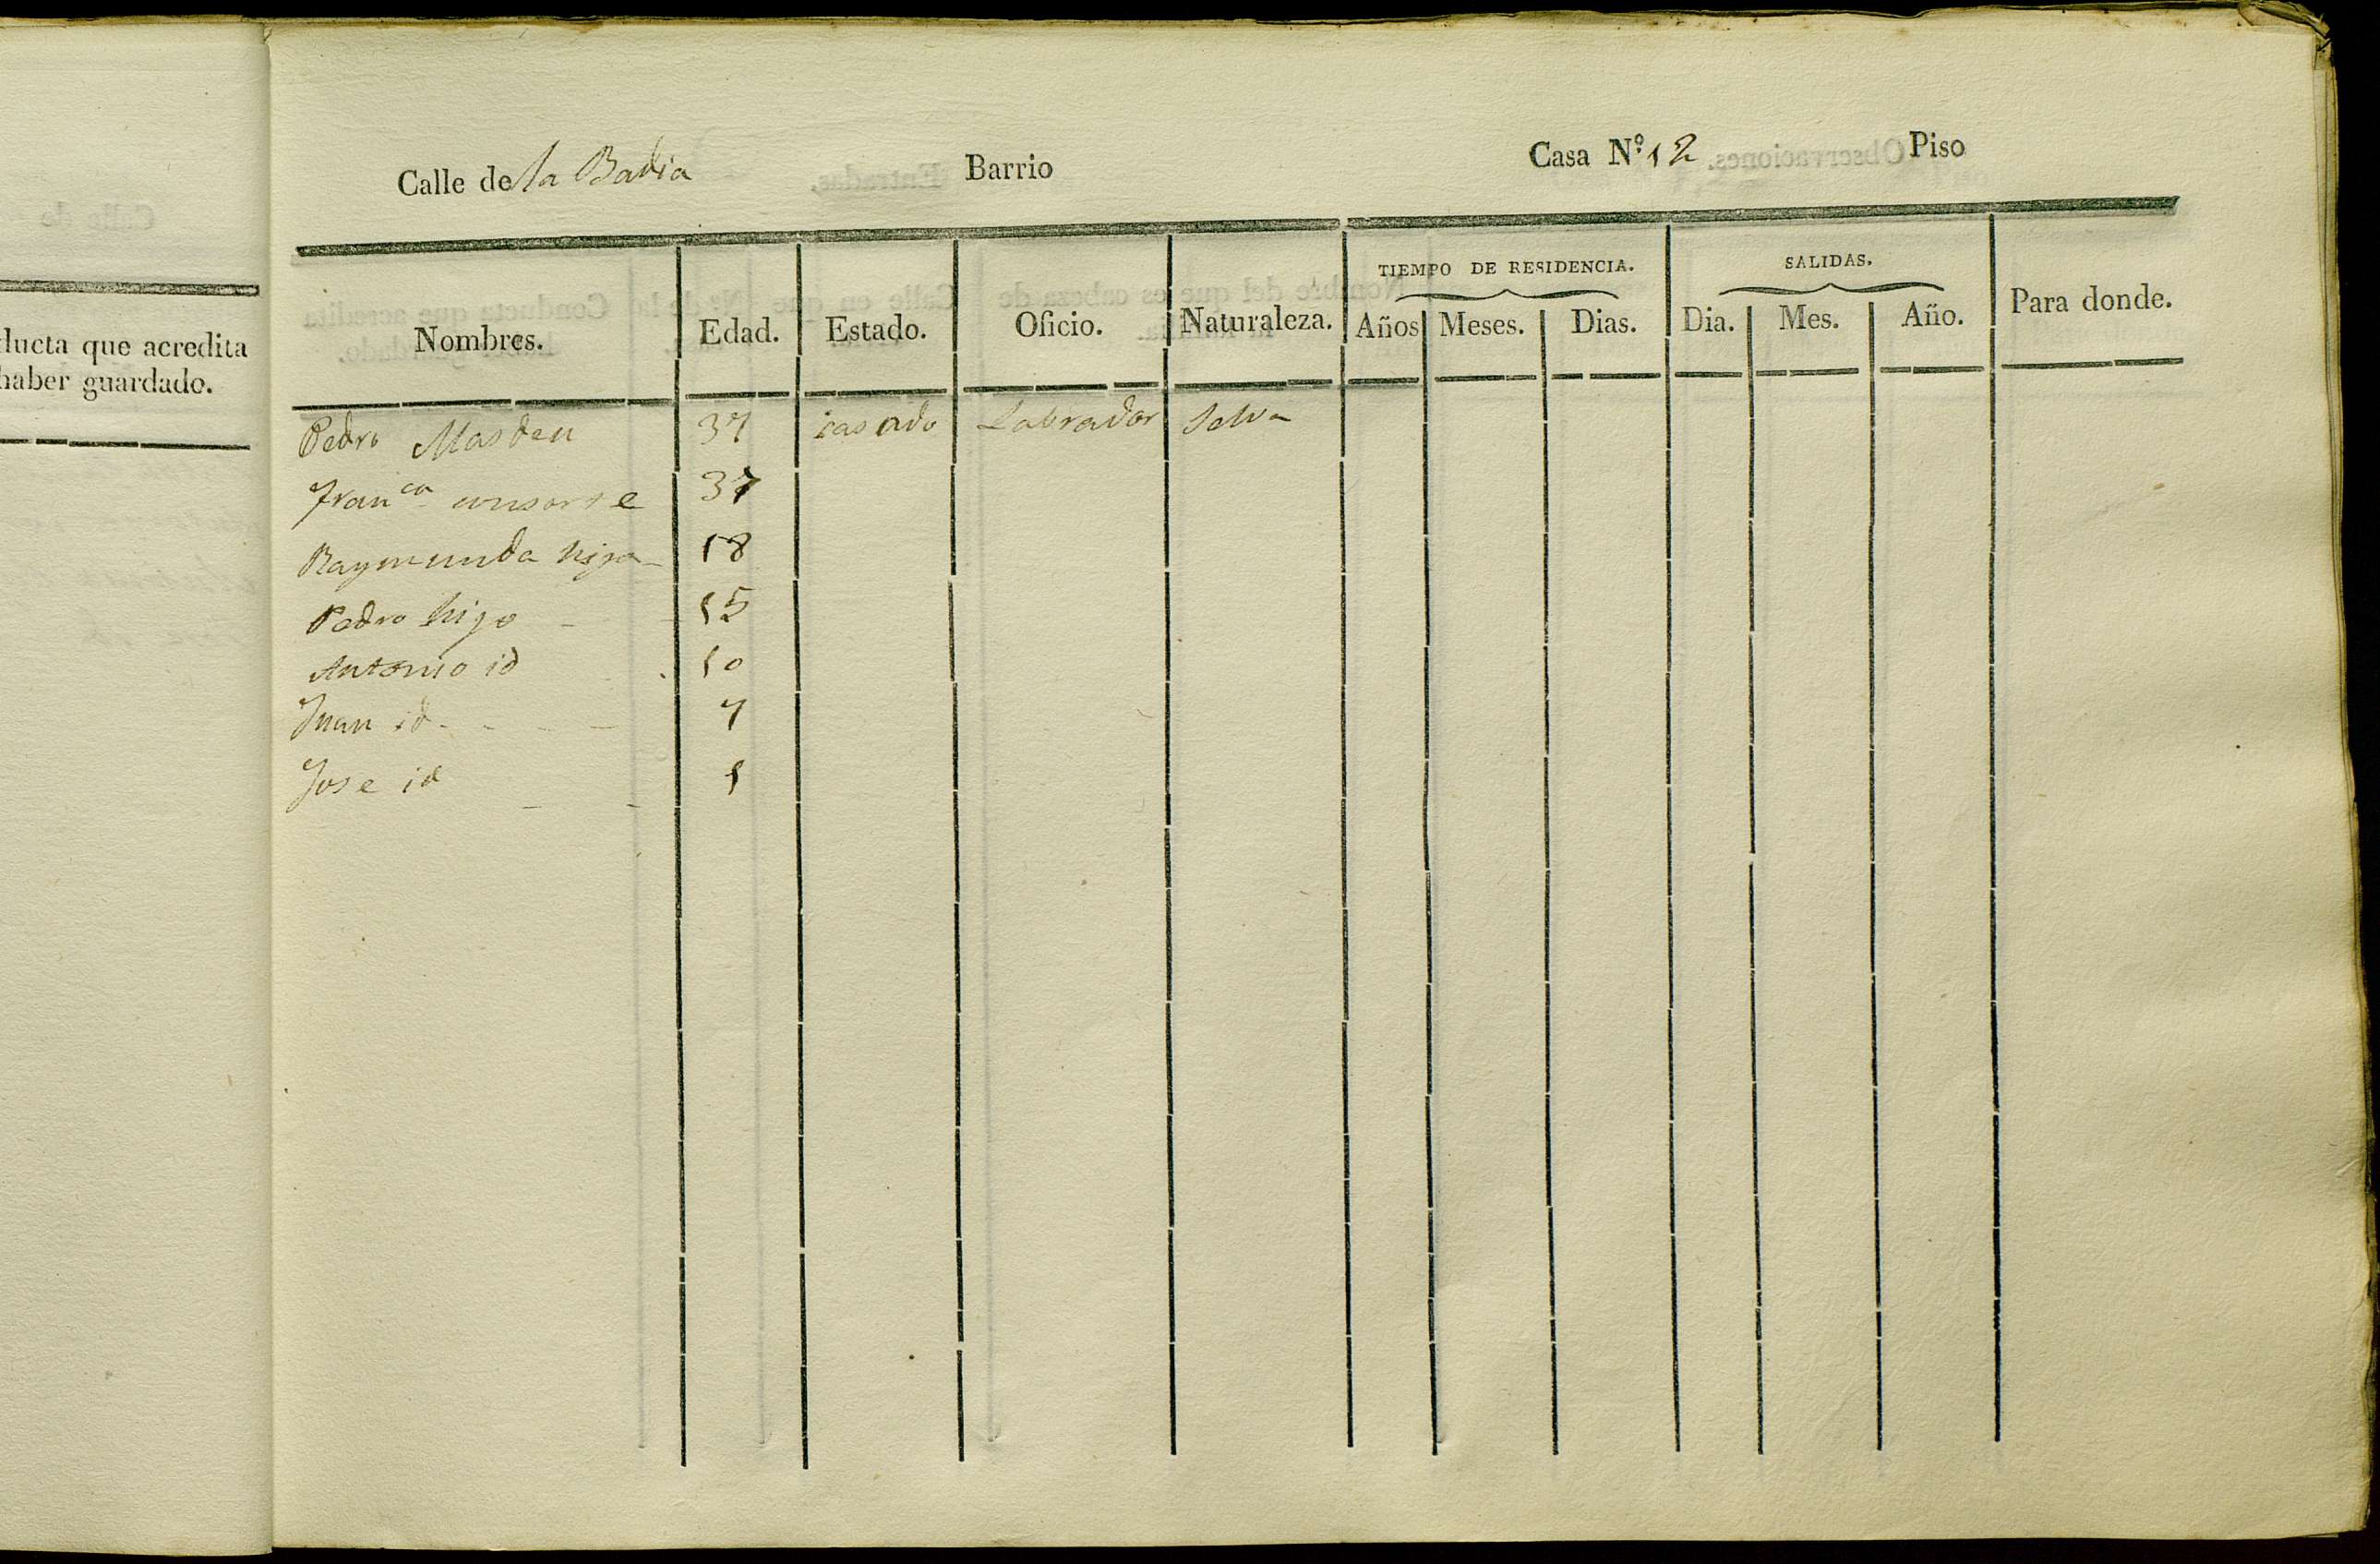 Calle de la Badia Barrio Casa Nº. 12 Piso
ducta que acredita
haber guardado.
TIEMPO DE RESIDENCIA. SALIDAS.
Nombres. Edad. Estado. Oficio. Naturaleza. Años Meses. Dias. Dia. Mes. Año. Para donde.
Pedro Masdeu 37 casado Labrador Selva
Franca consorte 37
Raymunda hija 18
Pedro hijo 15
Antonio id 10
Juan id 7
Jose id 1